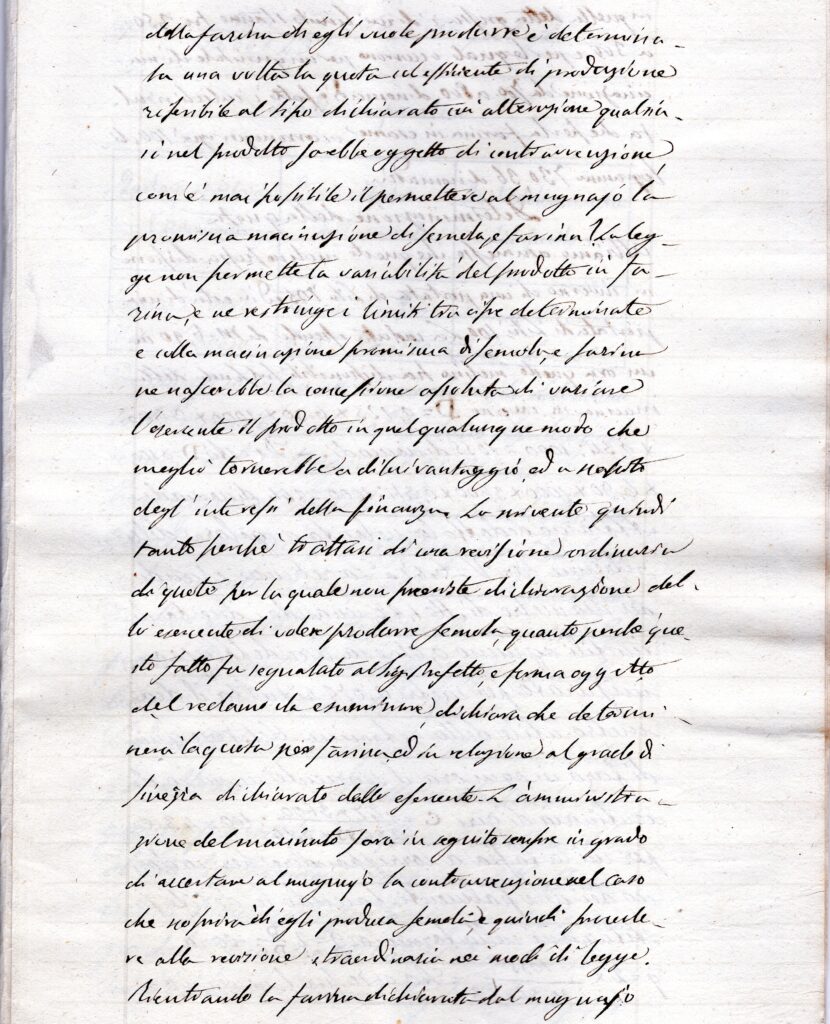 della farina ch'egli vuole produrre è determina-
ta una volta la quota coefficiente di produzione
riferibile al tipo dichiarato un'alterazione qualsia-
si nel prodotto sarebbe oggetto di contravvenzione
com'è mai possibile il permettere al mugnajo la
promiscua macinazione di semola, e farina? La leg-
ge non permette la variabilità del prodotto in fa-
rina, e ne restringe i limiti tra cifre determinate
e colla macinazione promiscua di semola, e farina
ne nascerebbe la concessione assoluta di variare
l'esercente il prodotto in quel qualunque modo che
meglio tornerebbe a di lui vantaggio, ed a scapito
degl'interessi della finanza. Lo scrivente quindi
tanto perchè trattasi di una revisione ordinaria
di quote per la quale non preesiste dichiarazione del-
lo esercente di volere produrre semola, quanto perchè que-
sto fatto fu segnalato al Sig. Prefetto, e forma oggetto
del reclamo da esaminare, dichiara che determi-
nerà la quota per farina, ed in relazione al grado di
finezza dichiarato dallo esercente. L'amministra-
zione del macinato sarà in seguito sempre in grado
di accertare al mugnajo la contravvenzione nel caso
che scoprirà ch'egli produca semola, e quindi procede-
re alla revisione straordinaria nei modi di legge.
Ritentando la farina dichiarata dal mugnajo